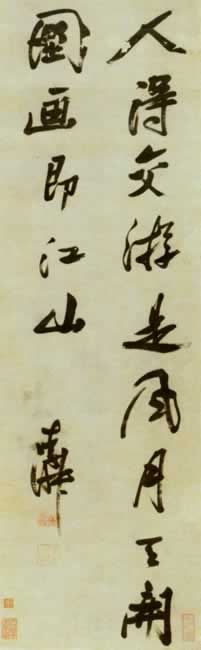 人得交游是風月天開
圖画即江山